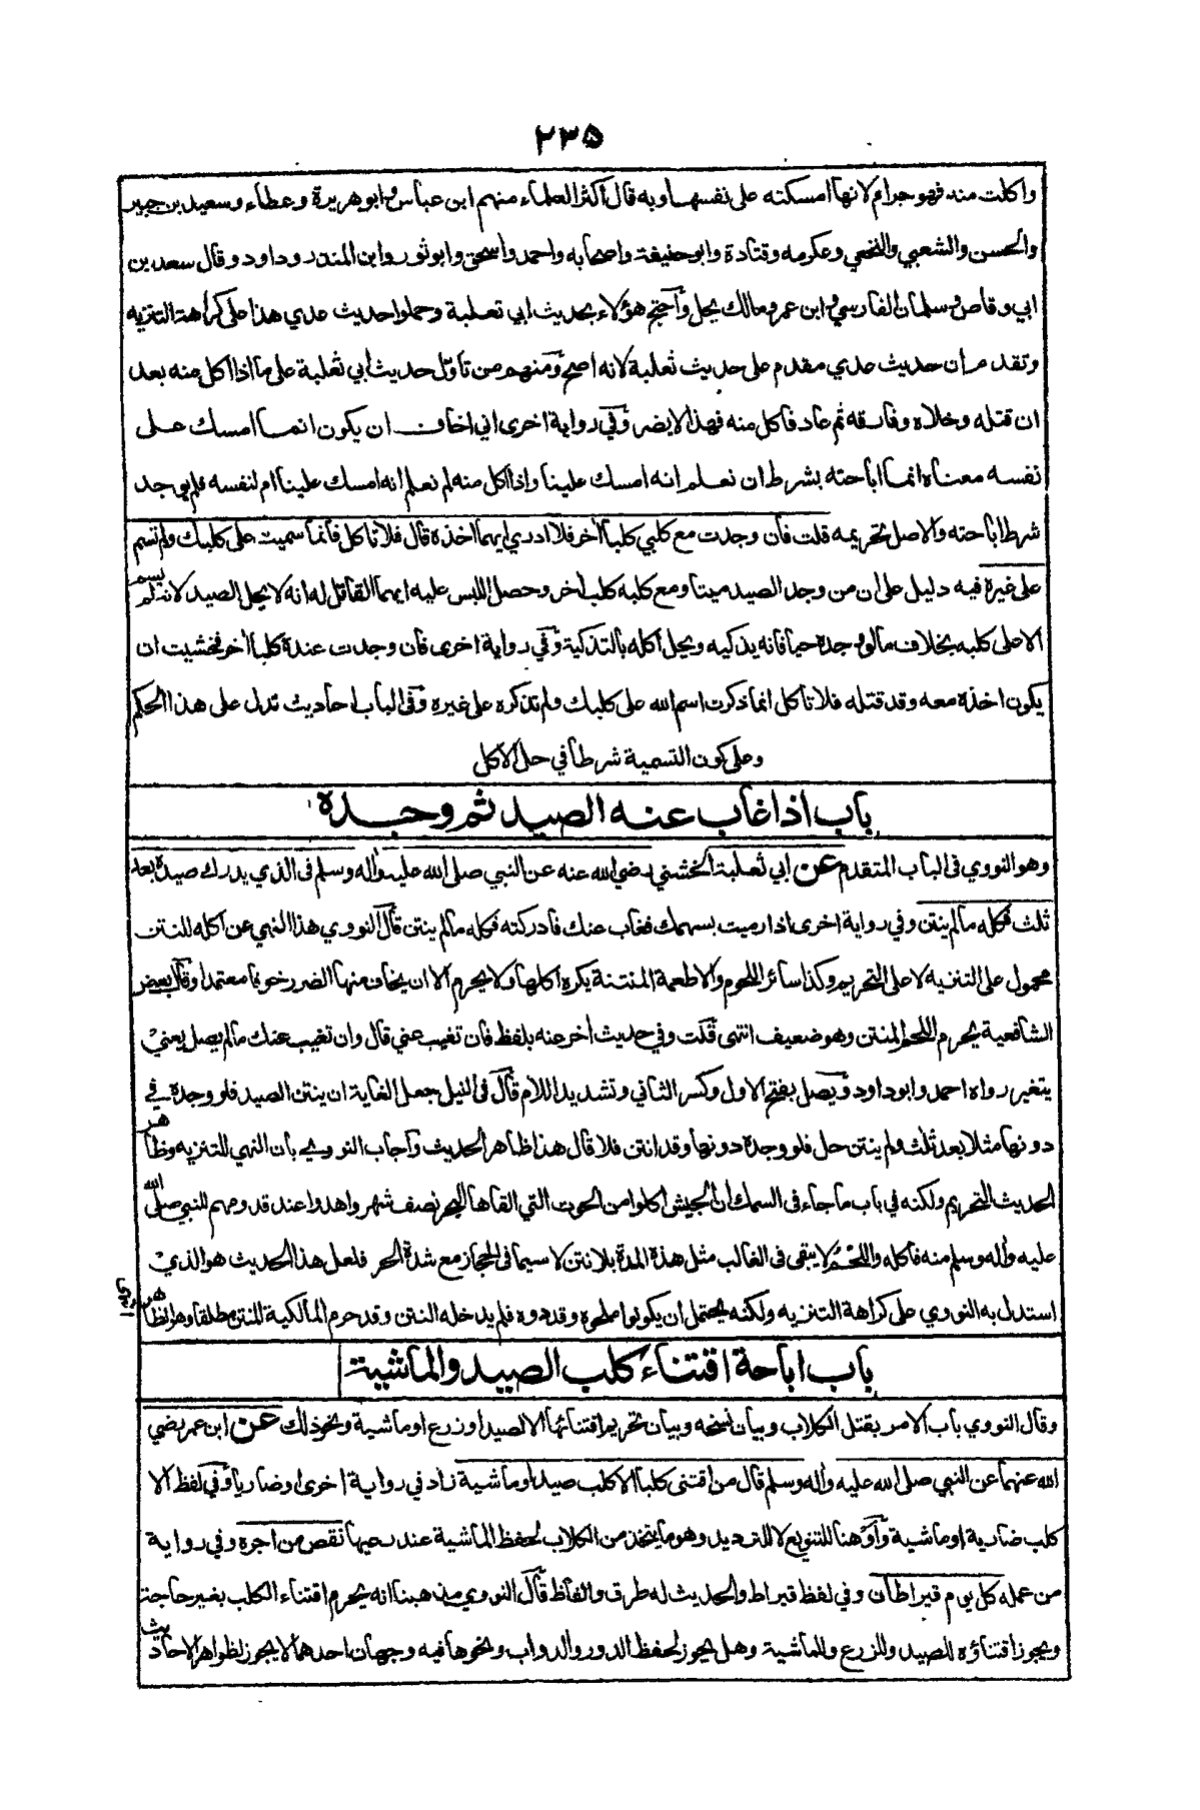 ٢٣٥
واكلت منه فهو حرام لانها امسكته على نفسها وبه قال اكثر العلماء منهم ابن عباس وابو هريرة وعطاء وسعيد بن جبير
والحسن والشعبي والنخعي وعكرمه وقتادة وابو حنيفة واصحابه واحمد واسحق وابو ثور وابن المنذر وداود وقال سعد بن
ابي وقاص وسلمان الفارسي وابن عمر ومالك يحل واحتج هؤلاء بحديث ابي ثعلبة وحملوا حديث عدي هذا على كراهة التنزيه
وتقدم ان حديث عدي مقدم على حديث ثعلبة لانه اصح ومنهم من تأول حديث ابي ثعلبة على ما اذا اكل منه بعد
ان قتله وخلاه وفارقه ثم عاد فاكل منه فهذا لا يضر وفي رواية اخرى اني اخاف ان يكون انما امسك على
نفسه معناه انما اباحته بشرط ان نعلم انه امسك علينا واذا اكل منه لم نعلم انه امسك علينا ام لنفسه فلم يوجد
شرط اباحته والاصل تحريمه قلت فان وجدت مع كلبي كلبا آخر فلا ادري ايهما اخذه قال فلا تاكل فانما سميت على كلبك ولم تسم
على غيره فيه دليل على ان من وجد الصيد ميتا ومع كلبه كلب اخر وحصل اللبس عليه ايهما القاتل له انه لا يحل الصيد لانه لم يسم
الا على كلبه بخلاف ما لو وجده حيا فانه يذكيه ويحل اكله بالتذكية وفي رواية اخرى فان وجدت عنده كلبا آخر فخشيت ان
يكون اخذه معه وقد قتله فلا تاكل انما ذكرت اسم الله على كلبك ولم تذكره على غيره وفي الباب احاديث تدل على هذا الحكم
وعلى كون التسمية شرطا في حل الاكل
باب اذا غاب عنه الصيد ثم وجده
وهو النووي في الباب المتقدم عن ابي ثعلبة الخشني رضي الله عنه عن النبي صلى الله عليه وآله وسلم في الذي يدرك صيده بعد
ثلث فكله ما لم ينتن وفي رواية اخرى اذا رميت بسهمك فغاب عنك فادركته فكله ما لم ينتن قال النووي هذا النهي عن اكله للنتن
محمول على التنزيه لا على التحريم وكذا سائر اللحوم والاطعمة المنتنة يكره اكلها ولا يحرم الا ان يخاف منها الضرر خوفا معتمدا وقال بعض
الشافعية يحرم اللحم المنتن وهو ضعيف انتهى قلت وفي حديث اخر عنه بلفظ فان تغيب عني قال وان تغيب عنك ما لم يصل يعني
يتغير رواه احمد وابو داود ويصل بفتح الاول وكسر الثاني وتشديد اللام قال في النيل جعل الغاية ان ينتن الصيد فلو وجده في
دونها مثلا بعد ثلث ولم ينتن حل فلو وجده دونها وقد انتن فلا قال هذا ظاهر الحديث واجاب النووي بان النهي للتنزيه وظاهر
الحديث التحريم ولكنه في باب ما جاء في السمك ان الجيش اكلوا من الحوت التي القاها البحر نصف شهر واهدوا عند قدومهم للنبي صلى الله
عليه وآله وسلم منه فاكله واللحم لا يبقى في الغالب مثل هذه المدة بلا نتن لا سيما في الحجاز مع شدة الحر فلعل هذا الحديث هو الذي
استدل به النووي على كراهة التنزيه ولكنه يحتمل ان يكونوا ملحوه وقددوه فلم يدخله النتن وقد حرم المالكية المنتن مطلقا وهو الظاهر
باب اباحة اقتناء كلب الصيد والماشية
وقال النووي باب الامر بقتل الكلاب وبيان نسخه وبيان تحريم اقتنائها الا لصيد او زرع او ماشية ونحو ذلك عن ابن عمر رضي
الله عنهما عن النبي صلى الله عليه وآله وسلم قال من اقتنى كلبا الا كلب صيد او ماشية زاد في رواية اخرى او ضاريا وفي لفظ الا
كلب ضارية او ماشية واو هنا للتنويع لا للترديد وهو ما يتخذ من الكلاب لحفظ الماشية عند رعيها نقص من اجره وفي رواية
من عمله كل يوم قيراطان وفي لفظ قيراط والحديث له طرق والفاظ قال النووي مذهبنا انه يحرم اقتناء الكلب بغير حاجة
ويجوز اقتناؤه للصيد وللزرع وللماشية وهل يجوز لحفظ الدور والدواب ونحوها فيه وجهان احدهما لا يجوز لظواهر الاحاديث